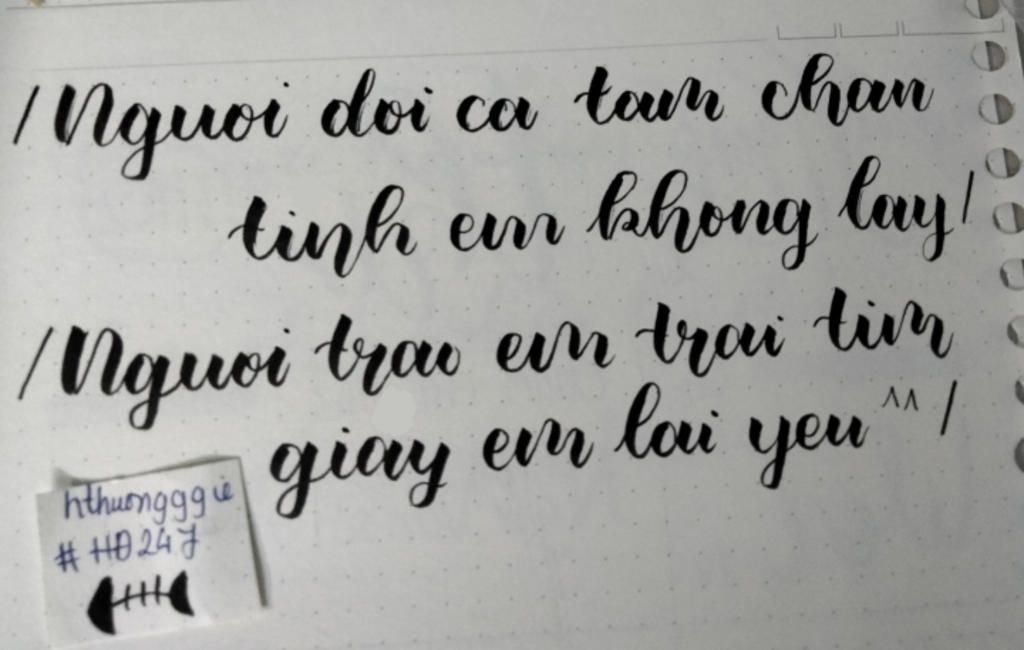 /Nguoi doi ca tam chan
tinh em khong lay/
/Nguoi trao em trai tim
giay em lai yeu ^^ /
hthuongggie
#HĐ247